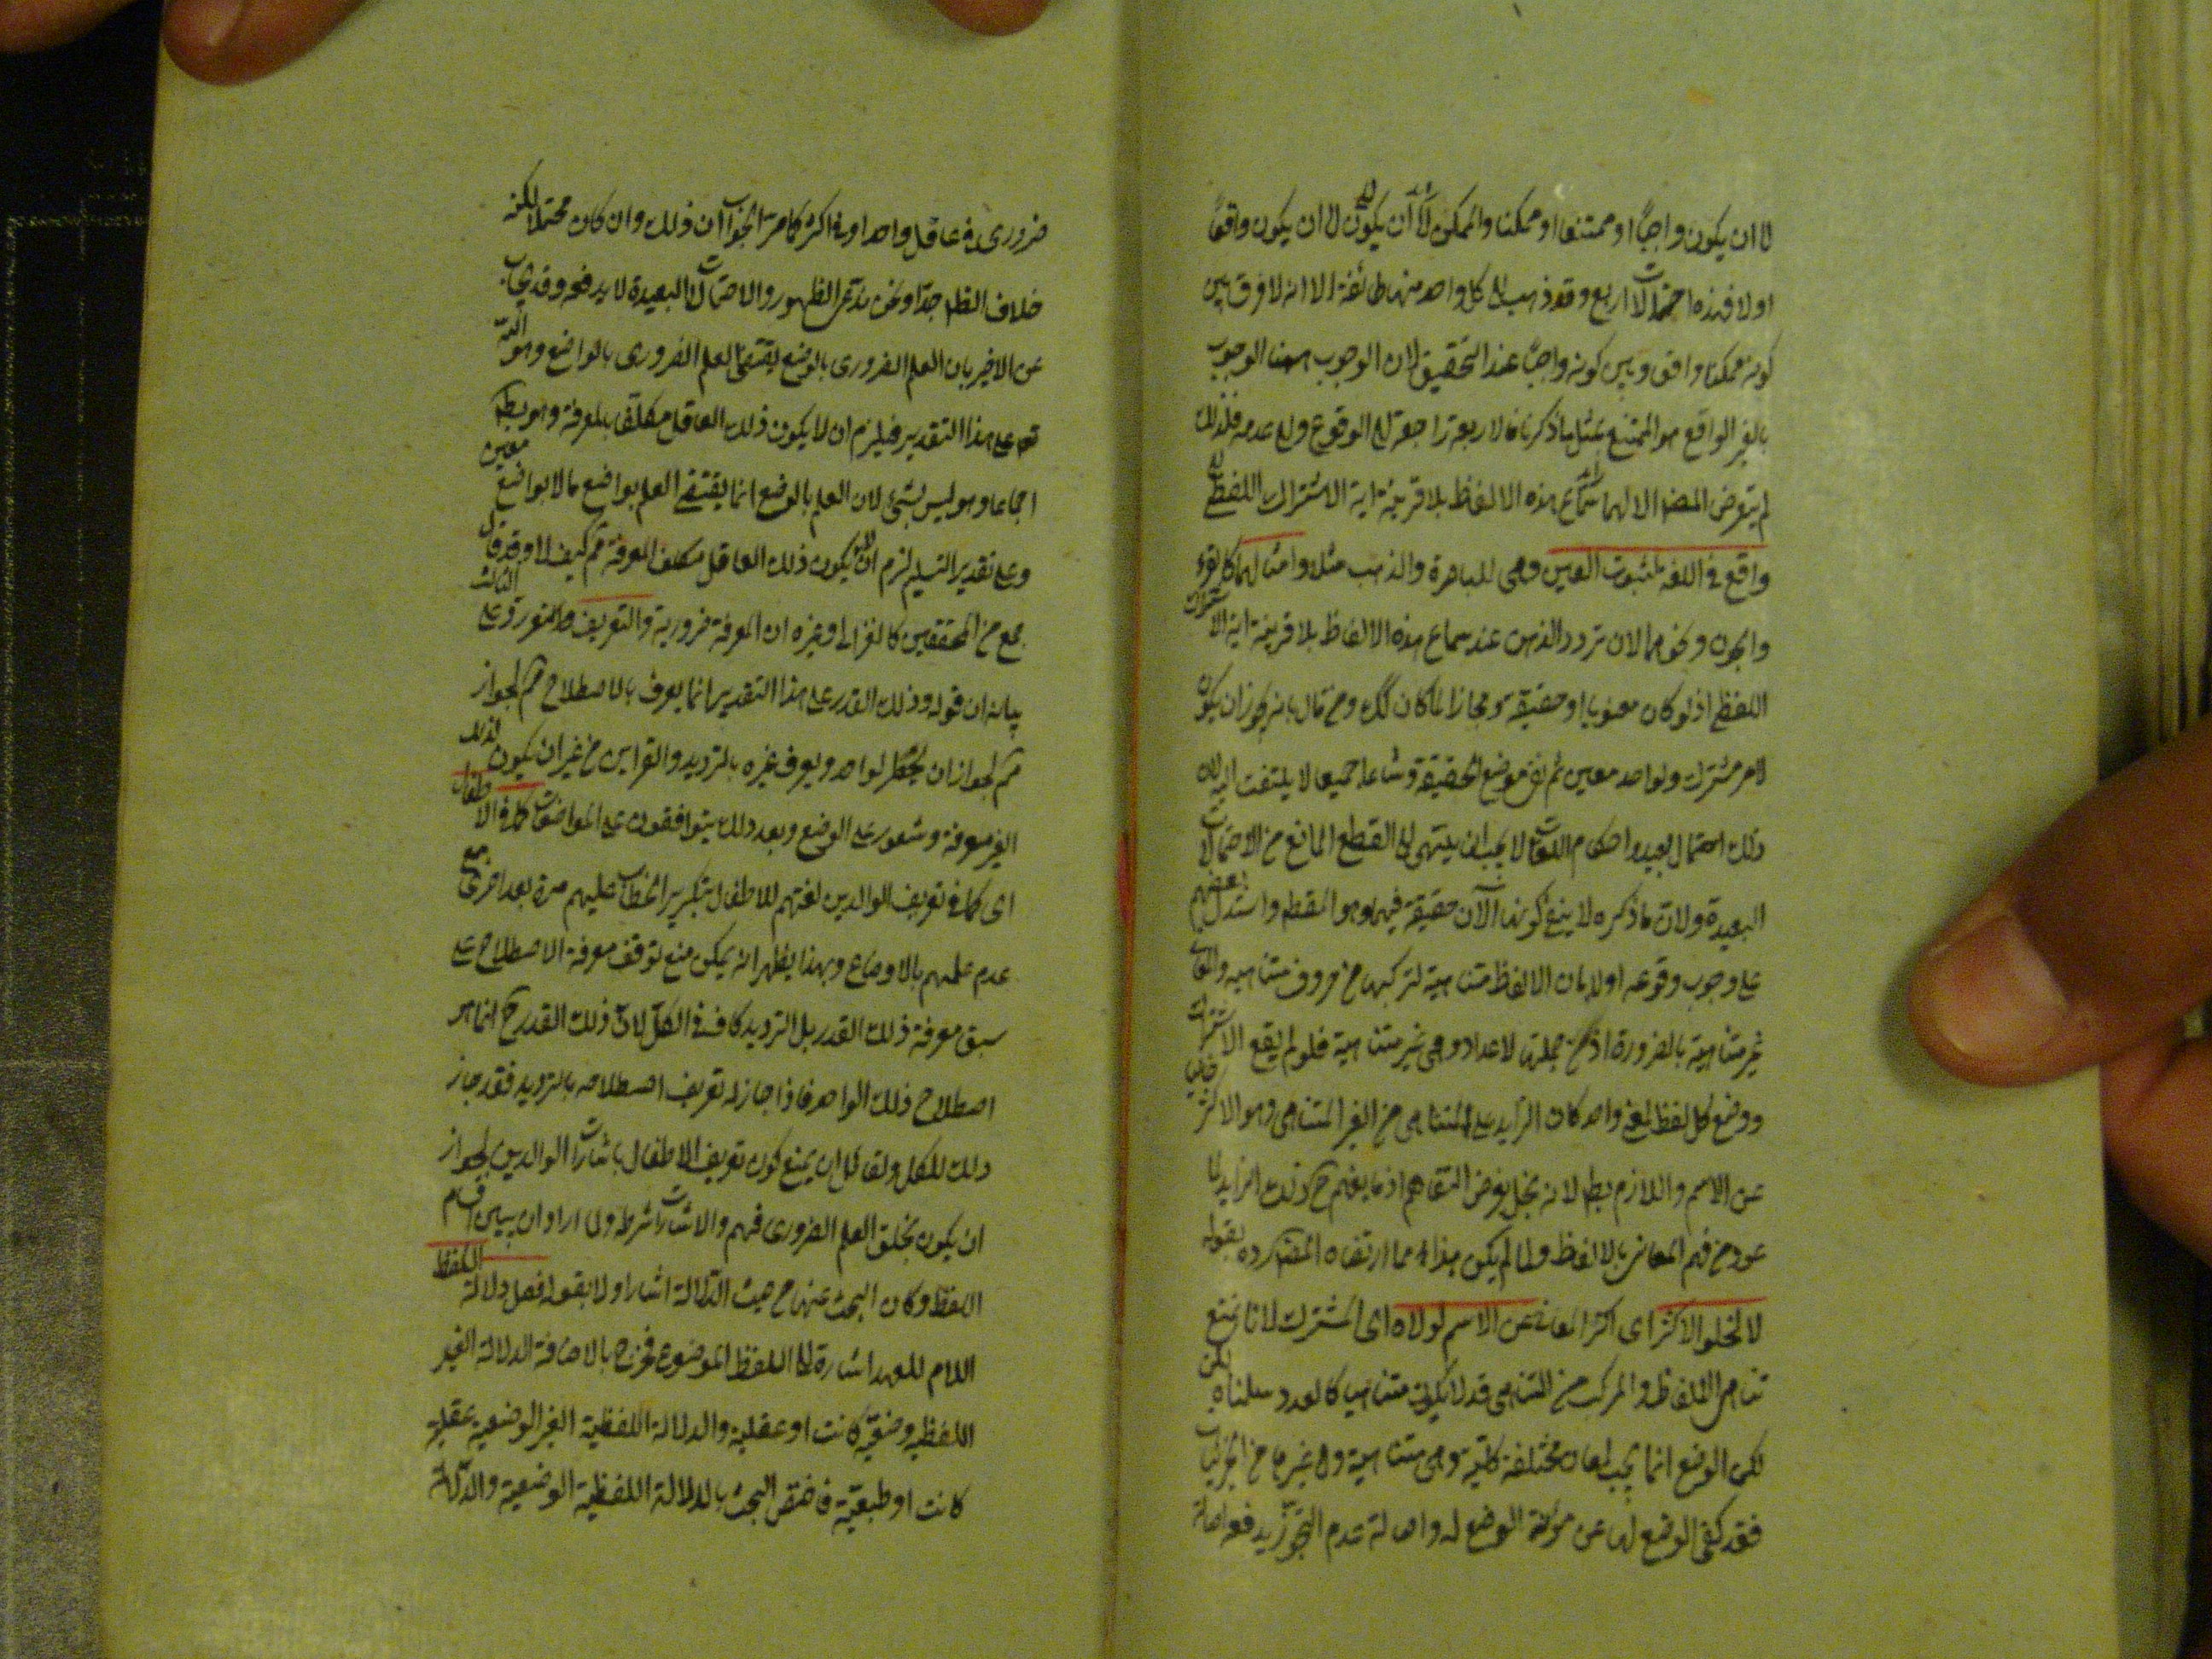 لا ان يكون واجبا او ممتنعا او ممكنا والممكن اما ان يكون لا ان يكون واقعا
او لا فهذه احتمالات اربع وقد ذهب الى كل واحد منها طائفة الا انه لا فرق بين
كونه ممكنا واقعا وبين كونه واجبا عند التحقيق لان الوجوب ههنا الوجوب
بالغير الواقع هو الممتنع بمثل ما ذكرنا فالاربعة راجعة الى الوقوع والى عدمه فلذلك
لم يتعرض المصنف الا لهما هذه الالفاظ بلا قرينة اية الاشتراك اللفظي
واقع في اللغة لثبوت العين وهي للباصرة والذهب مثلا وامثالهما كالقرء
والجون ونحوهما لان تردد الذهن عند سماع هذه الالفاظ بلا قرينة اية الاشتراك
اللفظي اذ لو كان معنويا او حقيقة ومجازا لما كان كك ومن قال بانه يجوز ان يكون
لامر مشترك ولواحد معين ثم موضع الحقيقة وشاعا جميعا لا يلتفت اليه لان
ذلك احتمال بعيد واحكام اللغات لا يجب ان ينتهى الى القطع المانع من الاحتمالات
البعيدة ولان ما ذكره لا ينفع كونها الآن حقيقة فيهما وهو المقصد واستدل بعضهم
على وجوب وقوعه اولا بان الالفاظ متناهية لتركبها من حروف متناهية والمعاني
غير متناهية بالضرورة اذ من جملتها الاعداد وهي غير متناهية فلو لم يقع الاشتراك
ووضع كل لفظ لمعنى واحد كان الزايد على المتناهي من الغير المتناهي وهو الاكثر خاليا
عن الاسم واللازم بط لانه يخل بغرض التفاهم اذ ما يفهم ح ذلك الزايد لما
عود من فهم المعاني بالالفاظ ولما لم يكن هذا مما ارتضاه المصنف رده بقوله
لا لخلو الاكثر اى اكثر المعاني عن الاسم لولاه اى المشترك لانا نمنع
تناهى الالفاظ والمركب من المتناهى قد لا يكون متناهيا كالعدد سلمناه لكن
لكن الوضع انما يجب لمعان مختلفة كلية وهي متناهية وفي غيرها من الجزئيات
فقد كفى الوضع لها عن مؤنة الوضع له واصالة عدم التجوز يدفع اصالة
ضرورى في عاقل واحد او في اكثر كما مر الجواب ان ذلك وان كان محتملا لكنه
خلاف الظاهر جدا ونحن ندعى الظهور والاحتمالات البعيدة لا يدفعه وقد يجاب
عن الاخير بان العلم الضرورى بالوضع يقتضى العلم الضرورى بالواضع وهو الله
تعالى على هذا التقدير فيلزم ان لا يكون ذلك العاقل مكلفا بالمعرفة وهو بط
اجماعا وهو ليس بشئ لان العلم بالوضع انما يقتضى العلم بواضع ما لا بواضع معين
وعلى تقدير التسليم لزم ان لا يكون ذلك العاقل مكلف المعرفة مم كيف لا وقد قال
جمع من المحققين كالغزالى وغيره ان المعرفة ضرورية والتعريف والثالث
بيانه ان قوله وذلك القدر على هذا التقدير انما يعرف بالاصطلاح مم لجواز
مم لجواز ان يحصل لواحد ويعرف غيره بالترديد والقراين من غير ان يكون لذلك
الغير معرفة وشعور على الوضع وبعد ذلك يتوافقون على المواضعات كما في الاطفال
اى كما في تعريف الوالدين لغتهم للاطفال بتكرير الخطاب عليهم مرة بعد اخرى مع
عدم علمهم بالاوضاع وبهذا يظهر انه يمكن منع توقف معرفة الاصطلاح على
سبق معرفة ذلك القدر بل الترديد كاف في الكل لان ذلك القدر ح انما هو
اصطلاح ذلك الواحد فاذا جاز له تعريف اصطلاحه بالترديد فقد جاز
ذلك للكل ولقائل ان يمنع كون تعريف الاطفال باشارات الوالدين لجواز
ان يكون بخلق العلم الضرورى فيهم والاشارات شرطه ولما اراد ان يبين اقسام
اللفظ وكان البحث عنها من حيث الدلالة اشار اولا بقوله فصل دلالة اللفظ
اللام للعهد اشارة الى اللفظ الموضوع فخرج بالاضافة الدلالة الغير
اللفظية وضعية كانت او عقلية والدلالة اللفظية الغير الوضعية عقلية
كانت او طبيعية فاختص البحث بالدلالة اللفظية الوضعية والدلالة